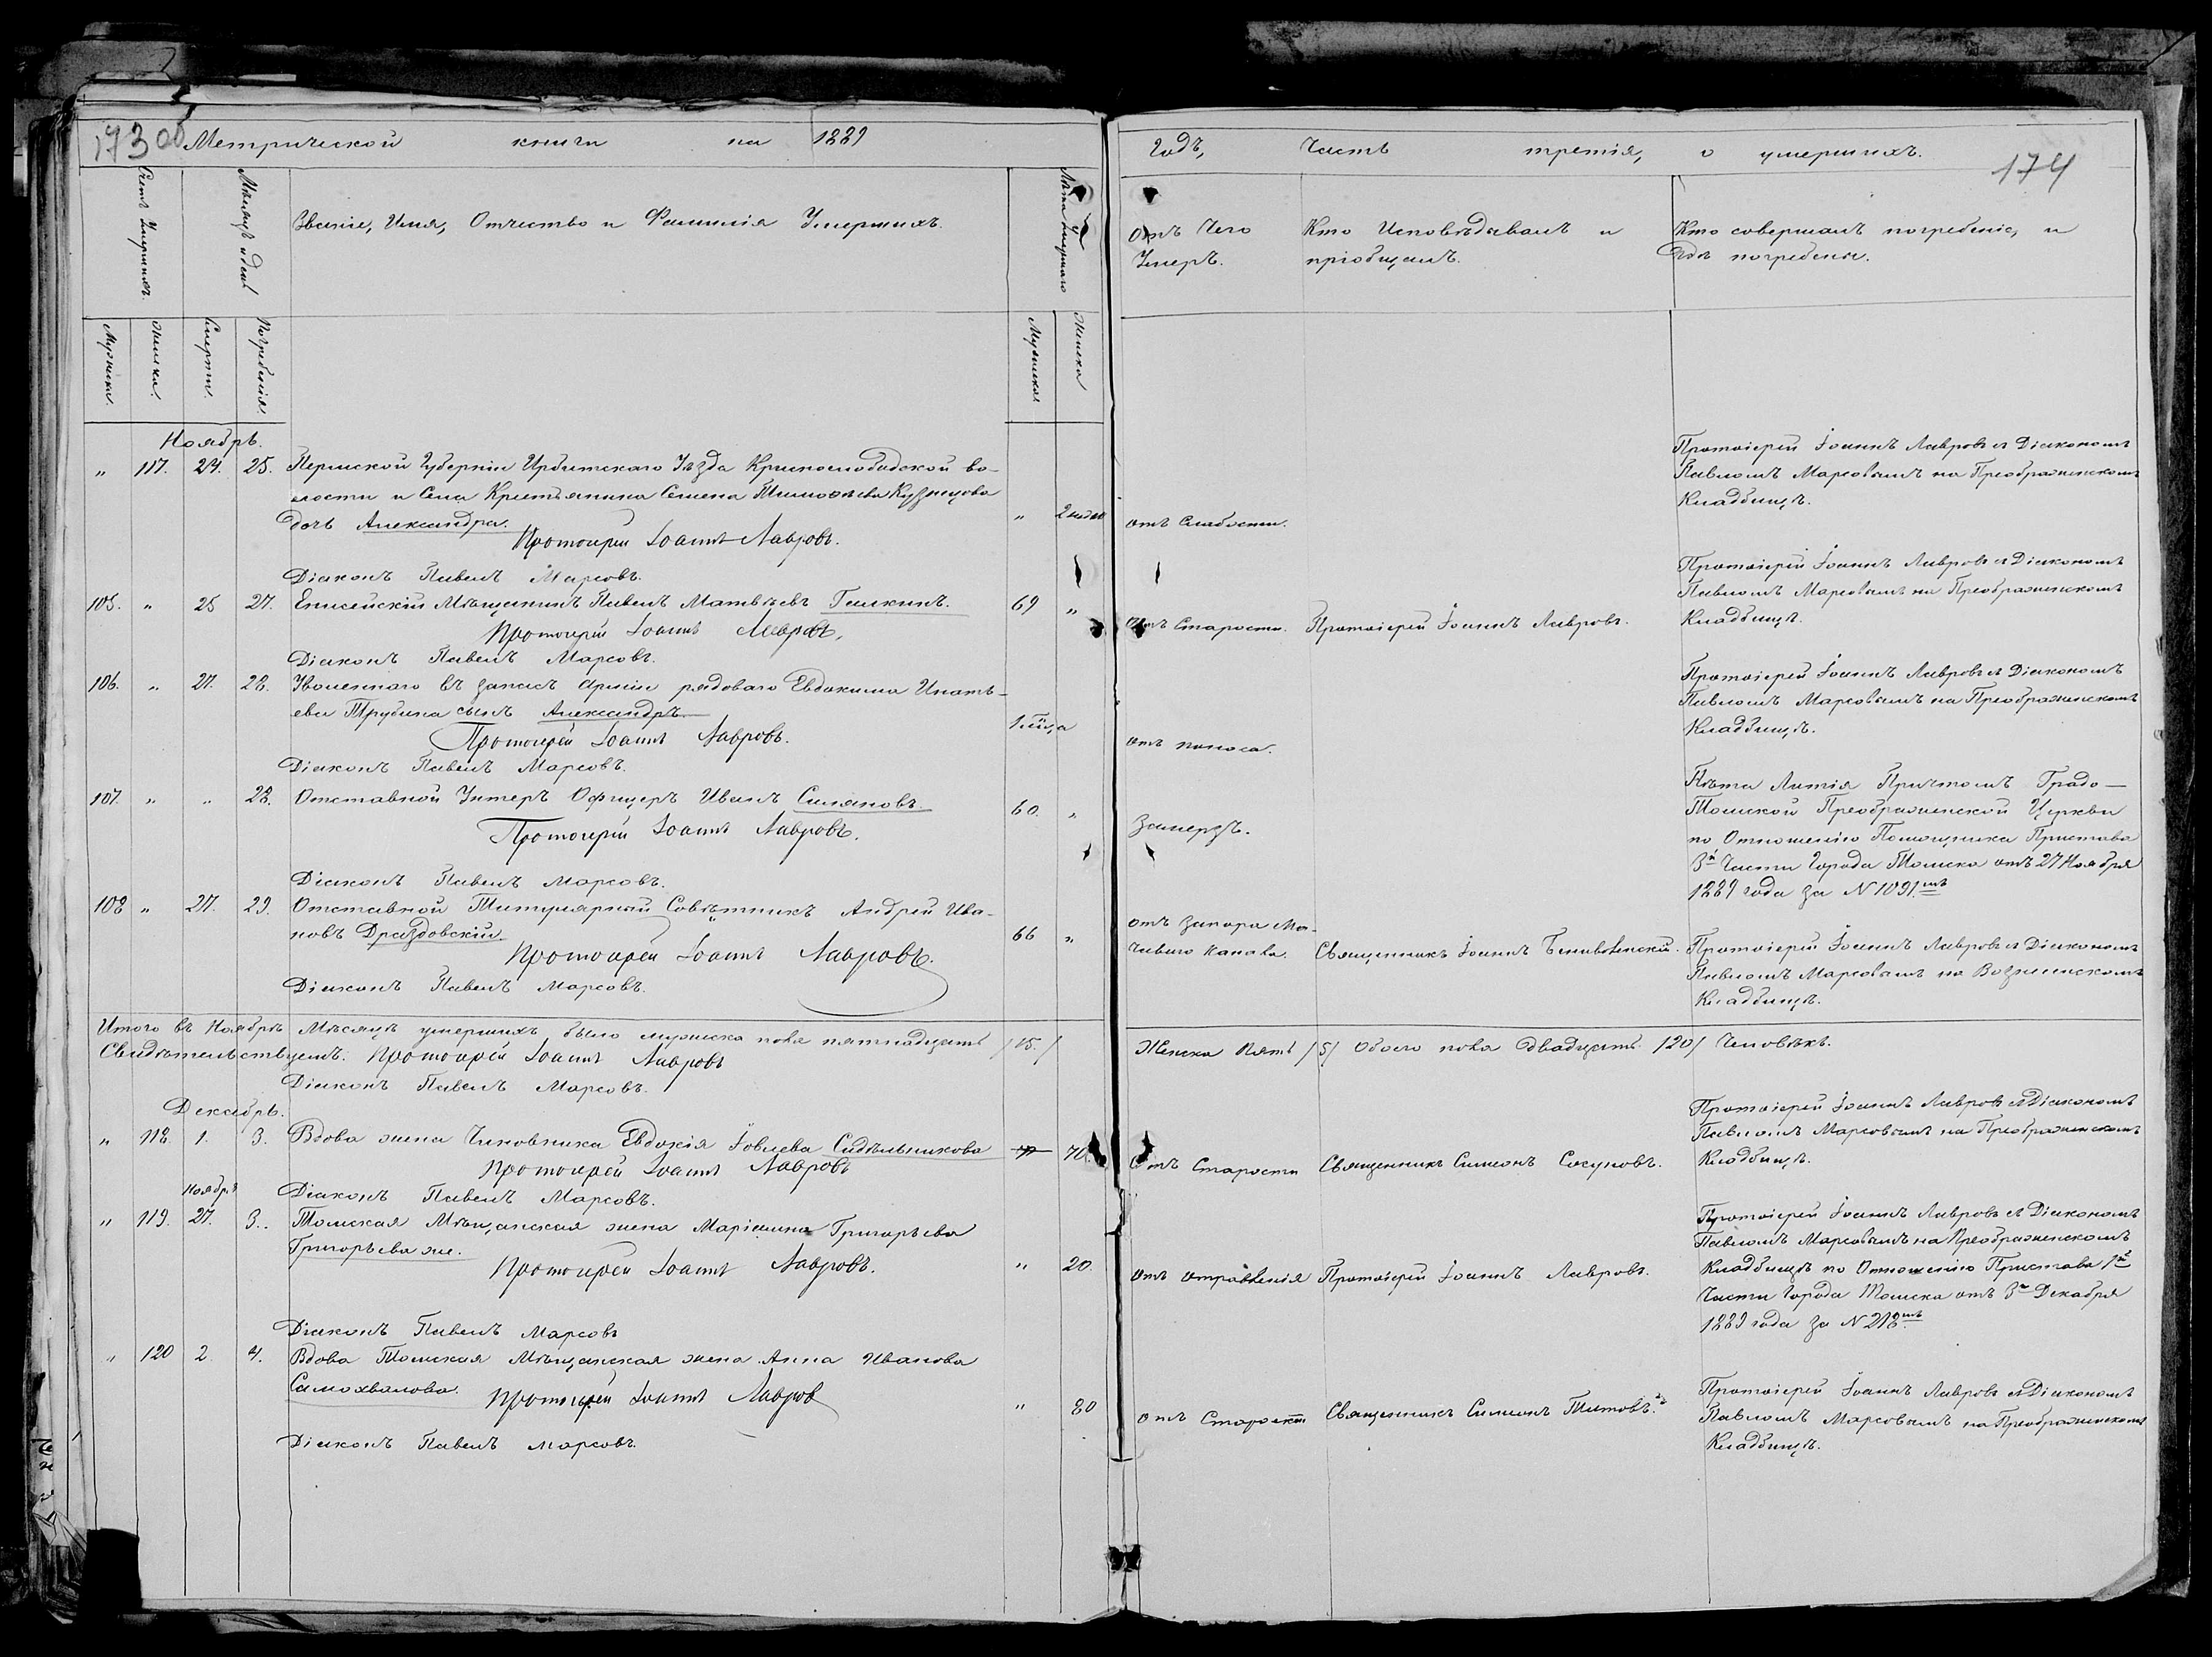 173об Метрической книги на 1889
Счетъ Умершихъ.
Мѣсяцъ и день
Званіе, Имя, Отчество и Фамилія Умершихъ.
Лѣта умершаго
Мужска.
Женска.
Смерти.
Погребенія.
Мужска
Женска
Ноябрь.
„ 117. 24. 25. Пермской Губерніи Ирбитскаго Уѣзда Краснослободской во-
лости и Села Крестьянина Семена Тимоѳѣева Кузнецова
дочь Александра. „ 2 недѣл
Протоіерей Іоаннъ Лавровъ.
Діаконъ Павелъ Марсовъ.
105. „ 25 27. Енисейскій Мѣщанинъ Павелъ Матвѣевъ Галкинъ. 69 „
Протоіерей Іоаннъ Лавровъ.
Діаконъ Павелъ Марсовъ.
106. „ 27. 28. Уволеннаго въ запасъ арміи рядоваго Евдокима Ипать-
ева Трубина сынъ Александръ 1 мѣсяца
Протоіерей Іоаннъ Лавровъ.
Діаконъ Павелъ Марсовъ.
107. „ „ 28. Отставной Унтеръ Офицеръ Иванъ Силяновъ. 60. „
Протоіерей Іоаннъ Лавровъ.
Діаконъ Павелъ Марсовъ.
108 „ 27. 29. Отставной Титулярный Совѣтникъ Андрей Ива-
новъ Драздовскій. 66 „
Протоіерей Іоаннъ Лавровъ.
Діаконъ Павелъ Марсовъ.
Итого въ Ноябрѣ Мѣсяцѣ умершихъ было мужска пола пятнадцать /15./
Свидѣтельствуемъ. Протоіерей Іоаннъ Лавровъ
Діаконъ Павелъ Марсовъ.
Декабрь.
„ 118. 1. 3. Вдова жена Чиновника Евдокія Іовлева Сидѣльникова 70.
Протоіерей Іоаннъ Лавровъ
Діаконъ Павелъ Марсовъ.
Ноябрь
„ 119. 27. 3. Томская Мѣщанская жена Маріамна Григорьева
Григорьева же. „ 20.
Протоіерей Іоаннъ Лавровъ.
Діаконъ Павелъ Марсовъ
„ 120 2. 4. Вдова Томская Мѣщанская жена Анна Иванова
Самохвалова. „ 80
Протоіерей Іоаннъ Лавровъ
Діаконъ Павелъ Марсовъ.
Годъ, Часть третія, о умершихъ.
174
Отъ Чего
Умеръ.
Кто Исповѣдывалъ и
пріобщалъ.
Кто совершалъ погребеніе, и
Гдѣ погребены.
Протоіерей Іоаннъ Лавровъ съ Діакономъ
Павломъ Марсовымъ на Преображенскомъ
Кладбищѣ.
отъ Слабости.
Протоіерей Іоаннъ Лавровъ съ Діакономъ
Павломъ Марсовымъ на Преображенскомъ
Кладбищѣ.
отъ Старости. Протоіерей Іоаннъ Лавровъ.
Протоіерей Іоаннъ Лавровъ съ Діакономъ
Павломъ Марсовымъ на Преображенскомъ
Кладбищѣ.
отъ поноса.
Пѣта Литія Причтомъ Градо-
Томской Преображенской Церкви
по Отношенію Помощника Пристава
3й Части Города Томска отъ 27 Ноября
1889 года за N 1091.мъ
Замерзъ.
отъ Запора Мо-
чеваго канала. Священникъ Іоаннъ Бенивленскій.
Протоіерей Іоаннъ Лавровъ съ Діакономъ
Павломъ Марсовымъ на Вознесенскомъ
Кладбищѣ.
Женска Пять /5/ Обоего пола двадцать /20/ Человѣкъ.
Протоіерей Іоаннъ Лавровъ съ Діакономъ
Павломъ Марсовымъ на Преображенскомъ
Кладбищѣ.
Отъ Старости Священникъ Симеонъ Сосуновъ.
Протоіерей Іоаннъ Лавровъ съ Діакономъ
Павломъ Марсовымъ на Преображенскомъ
Кладбищѣ по Отношенію Пристава 1й
Части Города Томска отъ 3го Декабря
1889 года за N 218мъ
отъ отравленія Протоіерей Іоаннъ Лавровъ.
Протоіерей Іоаннъ Лавровъ съ Діакономъ
Павломъ Марсовымъ на Преображенскомъ
Кладбищѣ.
отъ Старости Священникъ Симеонъ Титовъ.